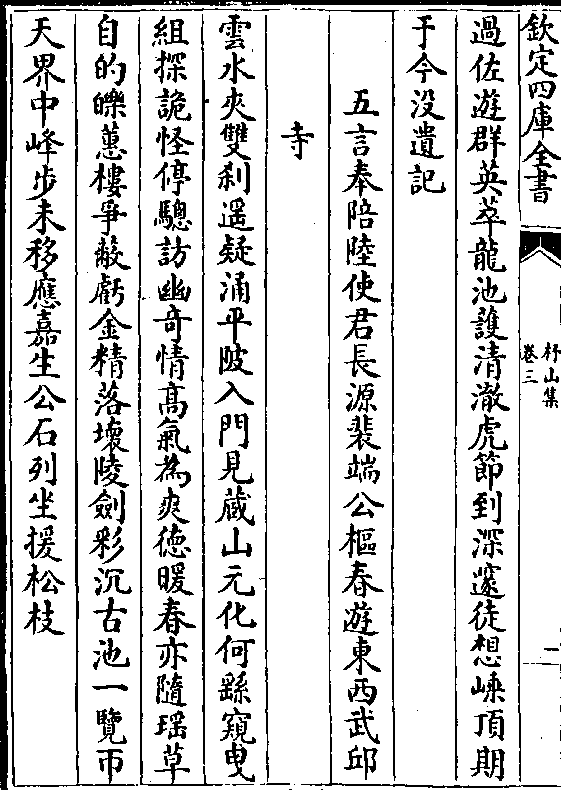 欽定四庫全書
杼山集
卷三
一
過佐遊群英萃龍池護清澈虎節到深邃徒想嵊頂期
于今没遺記
五言奉陪陸使君長源裴端公樞春遊東西武邱
寺
雲水夾雙刹遥疑涌平陂入門見藏山元化何繇窺曳
組探詭怪停驄訪幽奇情高氣為爽德暖春亦隨瑶草
自的皪蕙樓爭蔽虧金精落壞陵劍彩沉古池一覽帀
天界中峰步未移應嘉生公石列坐援松枝